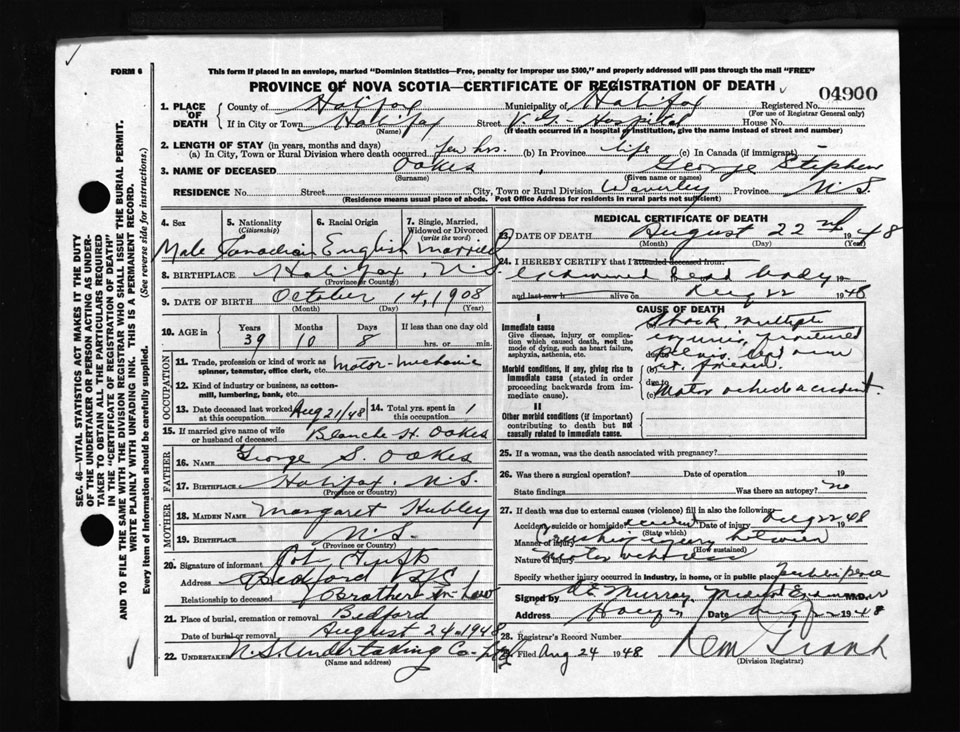 FORM 6
This form if placed in an envelope, marked "Dominion Statistics—Free, penalty for improper use $300," and properly addressed will pass through the mail "FREE"
PROVINCE OF NOVA SCOTIA—CERTIFICATE OF REGISTRATION OF DEATH
04900
1. PLACE OF DEATH
County of Halifax Municipality of Halifax Registered No.
(For use of Registrar General only)
If in City or Town Halifax Street V. G. Hospital House No.
(Name) (If death occurred in a hospital or institution, give the name instead of street and number)
2. LENGTH OF STAY (in years, months and days)
(a) In City, Town or Rural Division where death occurred few hrs. (b) In Province life (c) In Canada (if immigrant)
3. NAME OF DECEASED Oakes, George Stephen
(Surname) (Given name or names)
RESIDENCE No. Street City, Town or Rural Division Waverley Province N.S.
(Residence means usual place of abode. Post Office Address for residents in rural parts not sufficient)
4. Sex 5. Nationality (Citizenship) 6. Racial Origin 7. Single, Married, Widowed or Divorced (write the word)
Male Canadian English Married
8. BIRTHPLACE Halifax, N.S.
(Province or Country)
9. DATE OF BIRTH October 14, 1908
(Month) (Day) (Year)
10. AGE in Years Months Days If less than one day old
39 10 8 hrs. or min.
OCCUPATION
11. Trade, profession or kind of work as spinner, teamster, office clerk, etc. Motor-Mechanic
12. Kind of industry or business, as cotton-mill, lumbering, bank, etc.
13. Date deceased last worked at this occupation Aug 21/48 14. Total yrs. spent in this occupation 1
15. If married give name of wife or husband of deceased Blanche H. Oakes
FATHER
16. NAME George S. Oakes
17. BIRTHPLACE Halifax, N.S.
(Province or Country)
MOTHER
18. MAIDEN NAME Margaret Hubley
19. BIRTHPLACE N.S.
(Province or Country)
20. Signature of informant John
Address Bedford N.S.
Relationship to deceased Brother-in-Law
21. Place of burial, cremation or removal Bedford
Date of burial or removal August 24 1948
22. UNDERTAKER N.S. Undertaking Co. Ltd
(Name and address)
MEDICAL CERTIFICATE OF DEATH
23. DATE OF DEATH August 22nd 1948
(Month) (Day) (Year)
24. I HEREBY CERTIFY that I attended deceased from:
examined dead body 19
and last saw h alive on Aug 22 1948
CAUSE OF DEATH
I
Immediate cause
Give disease, injury or complication which caused death, not the mode of dying, such as heart failure, asphyxia, asthenia, etc.
(a) Shock, multiple
injuries, fractured
due to pelvis,
Morbid conditions, if any, giving rise to immediate cause (stated in order proceeding backwards from immediate cause).
(b)
due to
(c) Motor vehicle accident.
II
Other morbid conditions (if important) contributing to death but not causally related to immediate cause.
25. If a woman, was the death associated with pregnancy?
26. Was there a surgical operation? Date of operation 19
State findings Was there an autopsy? no
27. If death was due to external causes (violence) fill in also the following:
Accident, suicide or homicide? accident Date of injury Aug 22 1948
(State which)
Manner of injury Crushing injury between
(How sustained)
Nature of injury motor vehicles
Specify whether injury occurred in industry, in home, or in public place
Signed by D.E. Murray, Medical Examiner M.D.
Address Date Aug 22 1948
28. Registrar's Record Number
29. Filed Aug 24 1948
(Division Registrar)
SEC. 46—VITAL STATISTICS ACT MAKES IT THE DUTY
OF THE UNDERTAKER OR PERSON ACTING AS UNDER-
TAKER TO OBTAIN ALL THE PARTICULARS REQUIRED
IN THE "CERTIFICATE OF REGISTRATION OF DEATH"
AND TO FILE THE SAME WITH THE DIVISION REGISTRAR WHO SHALL ISSUE THE BURIAL PERMIT.
WRITE PLAINLY WITH UNFADING INK. THIS IS A PERMANENT RECORD.
Every item of information should be carefully supplied. (See reverse side for instructions.)